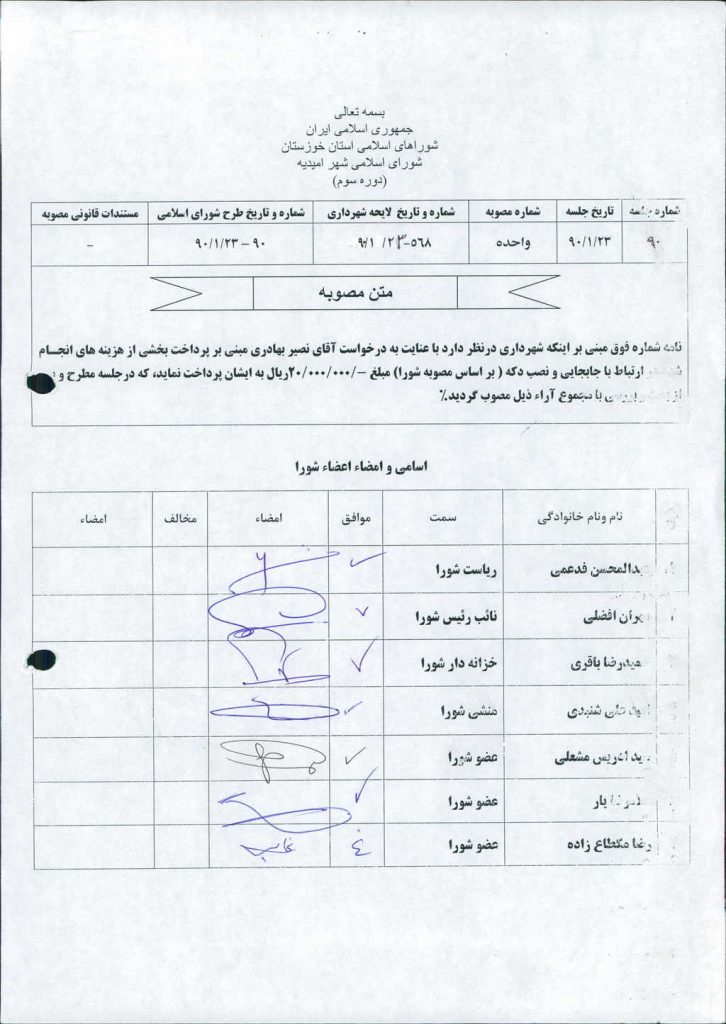 بسمه تعالی
جمهوری اسلامی ایران
شوراهای اسلامی استان خوزستان
شورای اسلامی شهر امیدیه
(دوره سوم)
شماره جلسه تاریخ جلسه شماره مصوبه شماره و تاریخ لایحه شهرداری شماره و تاریخ طرح شورای اسلامی مستندات قانونی مصوبه
۹۰ ۹۰/۱/۲۳ واحده ۵۶۸-۹۰/۱/۲۳ ۹۰ – ۹۰/۱/۲۳ -
متن مصوبه
نامه شماره فوق مبنی بر اینکه شهرداری درنظر دارد با عنایت به درخواست آقای نصیر بهادری مبنی بر پرداخت بخشی از هزینه های انجام
در ارتباط با جابجایی و نصب دکه ( بر اساس مصوبه شورا) مبلغ -/۲۰/۰۰۰/۰۰۰ریال به ایشان پرداخت نماید، که درجلسه مطرح و
از بررسی با مجموع آراء ذیل مصوب گردید.٪
اسامی و امضاء اعضاء شورا
نام ونام خانوادگی سمت موافق امضاء مخالف امضاء
عبدالمحسن فدعمی ریاست شورا
افضلی نائب رئیس شورا
حمیدرضا باقری خزانه دار شورا
علی شنبدی منشی شورا
مشعلی عضو شورا
یار عضو شورا
رضا مقطاع زاده عضو شورا غ غایب